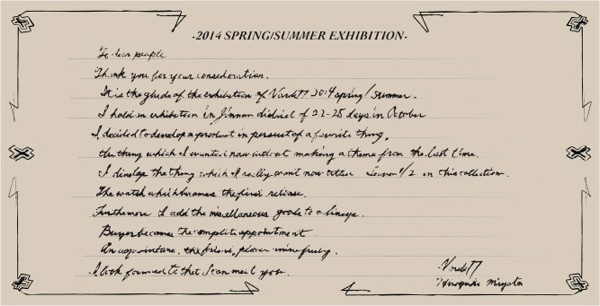 -2014 SPRING/SUMMER EXHIBITION-
To dear people
Thank you for your consideration.
It is the guide of the exhibition of 2014 spring/summer.
I hold an exhibition in Jinnan district of 22-25 days in October
I decided to develop a product in persuet of a favorite thing.
the thing which I want now without making a theme from the last time.
I develop the thing which I really want now titled 1/2 in this collection.
The watch which becomes the first release.
Furthermore I add the miscellaneous goods to a lineup.
Buyer became the complete appointment.
An acquaintance, the friend, please mine freely.
I look forward to that I can meet you.
Hiroyuki Miyata